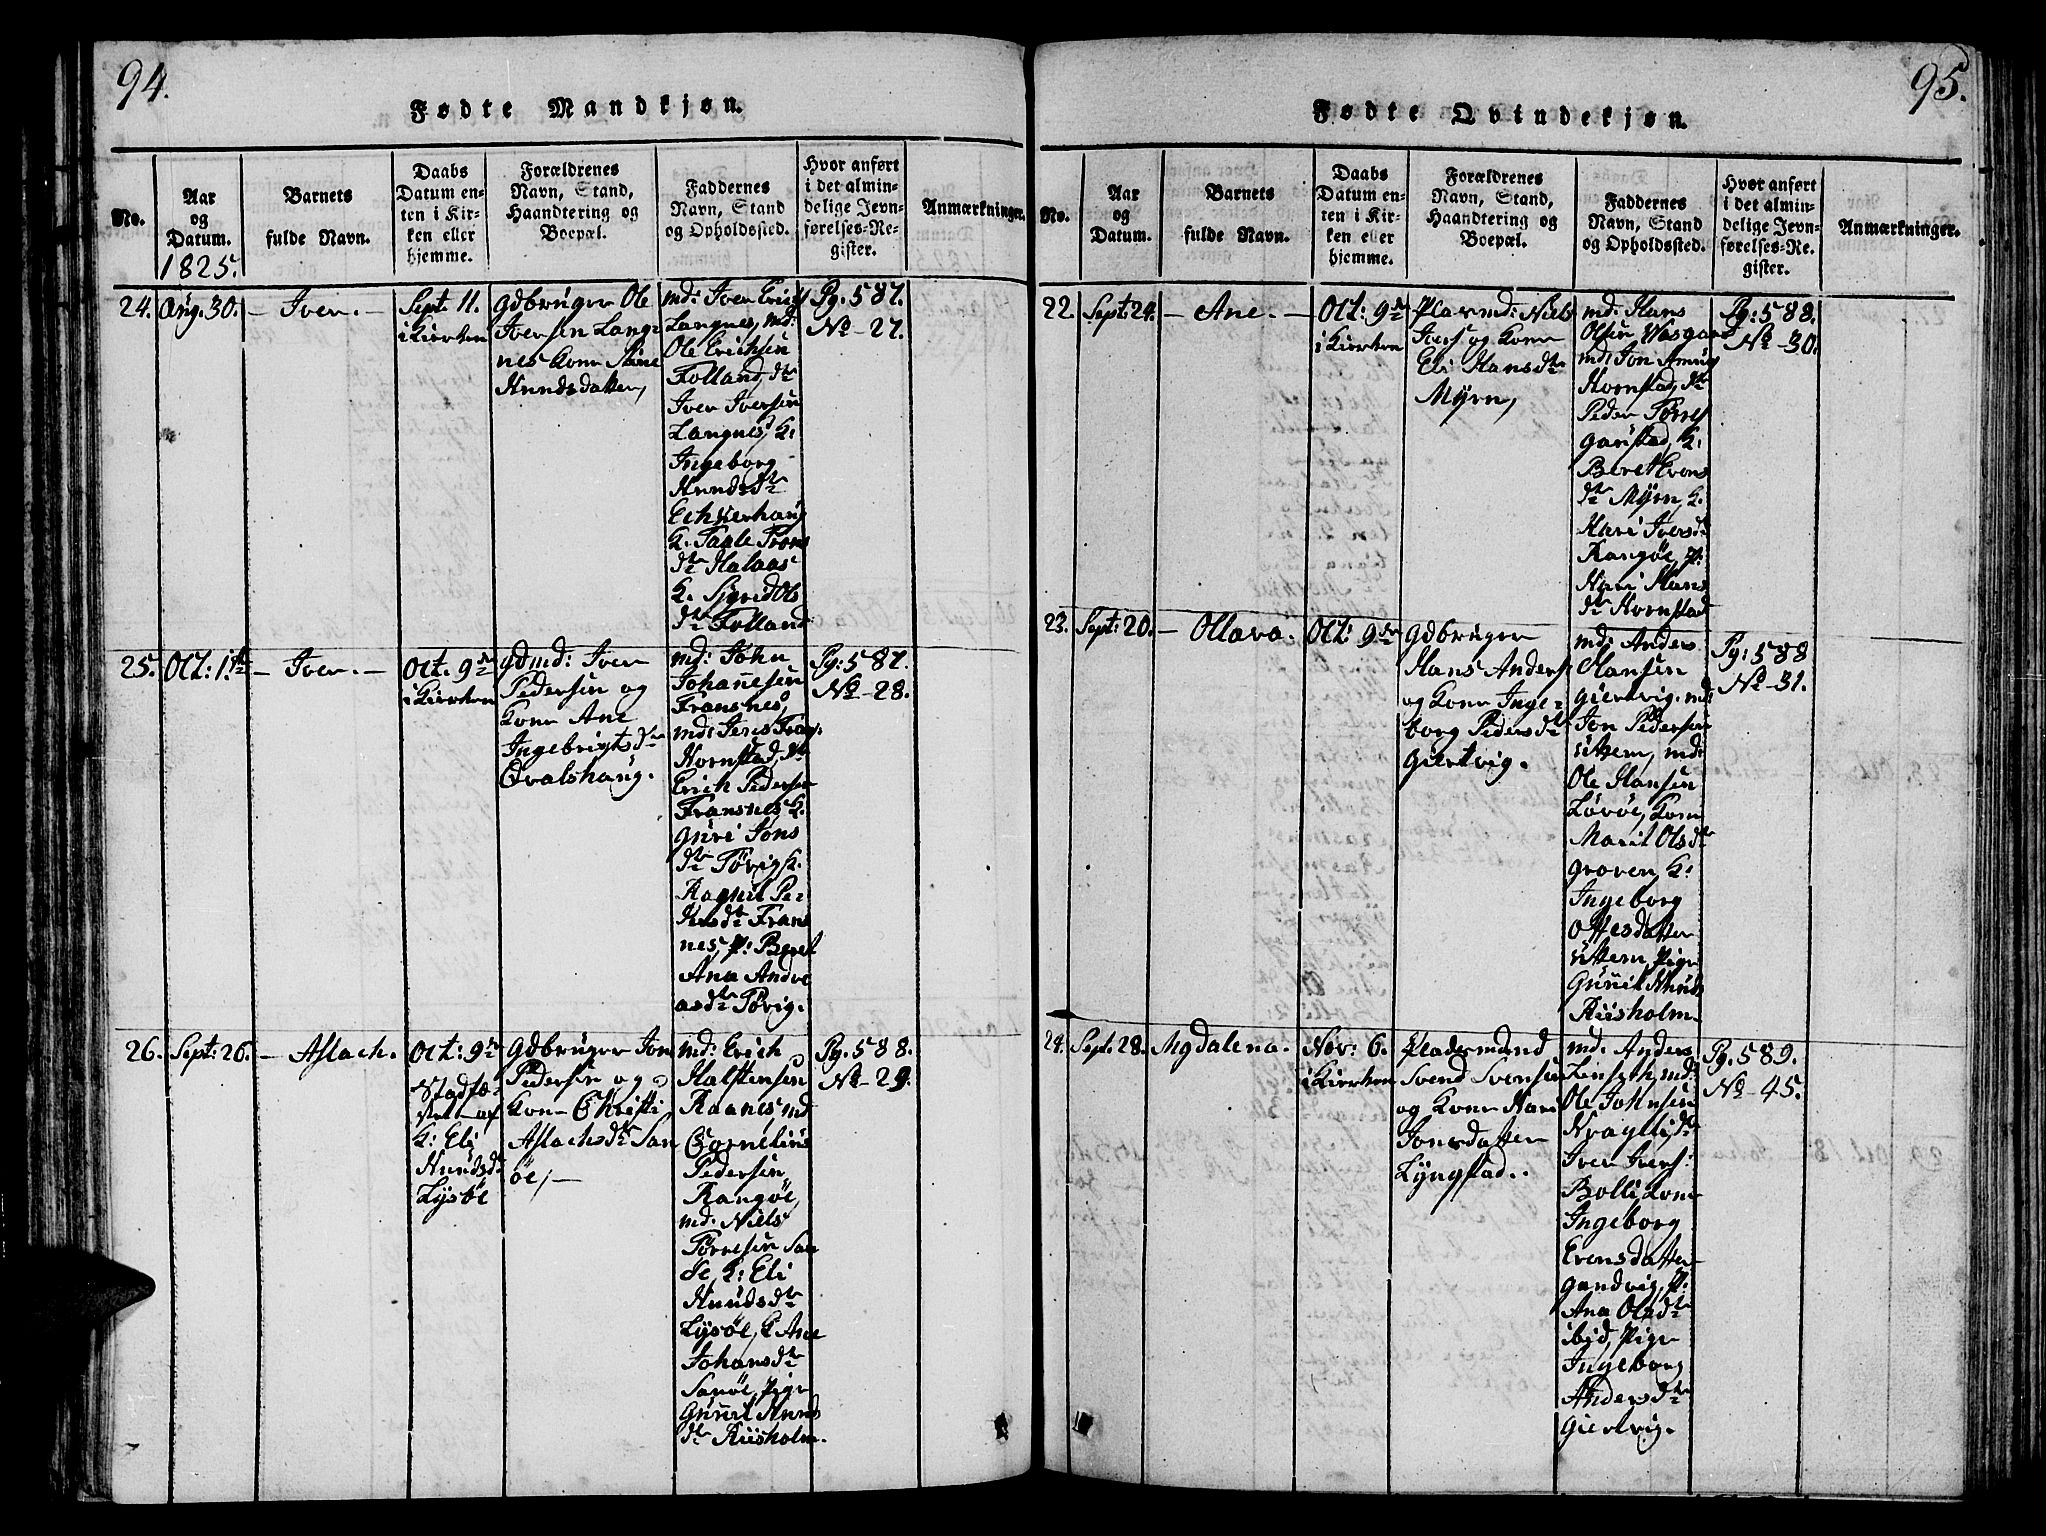 94.
Fødte Mandkjøn.
No.
Aar
og
Datum.
1825.
Barnets
fulde Navn.
Daabs
Datum en-
ten i Kir-
ken eller
hjemme.
Forældrenes
Navn, Stand,
Haandtering og
Boepæl.
Faddernes
Navn, Stand
og Opholdssted.
Hvor anført
i det almin-
delige Jevn-
førelses-Re-
gister.
Anmærkninger.
24.
Aug. 30.
Iver.
Sept. 11.
i Kirken
Gdbruger Ole
Iversen Lang-
nes Kone
Knudsdatter,
md: Iver Erichs
Langnes, md:
Ole Erichsen
Folland, dto
Iver Iversen
Langnes, K:
Ingeborg
Knudsdtr
K:
dtr Halaas
K. Sigrid Ols
dtr Folland
Pg. 587.
No 27.
25.
Oct: 1ste
Iver.
Oct. 9de
i Kirken
gdmd: Iver
Pedersen og
Kone Ane
Ingebrigtsdtr
Ørvalshaug.
md: John
Johannesen
Fransnes,
md:
Hornstad, dto
Erich Pedersen
Fransnes, K.
Guri Jons
dtr Tøvig K.
Ragnil Pe-
dersdtr Frans
nes, p: Beret
Ana Andre
asdtr Tøvig.
Pg: 587.
No 28.
26.
Sept: 26.
Aslach.
Oct: 9de
Stadfæ-
stet af
K: Eli
Knudsd
Lysøe
Gdbruger Jon
Pedersen og
Kone Christi
Aslachsdtr San
øe,
md: Erich
Halstensen
Raanes md
Cornelius
Pedersen
Rangøe,
md: Niels
Tørresen San
øe, K: Eli
Knudsdtr
Lysøe, K Ane
Johansdtr
Sanøe, Pige
Gunil Knuds
dtr Riisholm.
Pg. 588.
No 29.
95.
Fødte Qvindekjøn.
No.
Aar
og
Datum.
Barnets
fulde Navn.
Daabs
Datum en-
ten i Kir-
ken eller
hjemme.
Forældrenes
Navn, Stand,
Haandtering og
Boepæl.
Faddernes
Navn, Stand
og Opholdssted.
Hvor anført
i det almin-
delige Jevn-
førelses-Re-
gister.
Anmærkninger.
22.
Sept: 24.
Ane.
Oct: 9de
i Kirken
Niels
Ivers og Kone
Eli Hansdtr
Myrn,
md: Hans
Olsen Vaagaard
md: Jon Amund
Hornstad, dto
Peder Tørres
Garstad, K:
Beret Evens
dtr Myrn, K.
Mari Iversd
Rangøe, p:
Mari Hans
dtr Hornstad
Pg: 588.
No 30.
23.
Sept: 20.
Ollava.
Oct: 9de
Gdbruger
Hans Anders
og Kone Inge-
borg Pedersdtr
Giertvig.
md: Anders
Hansen
Giertvig. md
Jon Pedersen
Uttern, md:
Ole Hansen
Lørøe, Kone
Marit Olsdtr
groven, K:
Ingeborg
Ottesdatter
Uttern, Pige
Gunil Knuds
Riisholm.
Pg: 588
No 31.
24.
Sept. 28.
Magdalena.
Nov: 6.
i Kirken
Pladsmand
Svend Svensen
og Kone Mari
Jonsdatter
Lyngstad.
md: Anders
Lenseth, md:
Ole Johnsen
dto
Iver Ivers:
Bolli, Kone
Ingeborg
Evensdatter
Gandvig, P:
Ana Olsdtr
ibid, Pige
Ingeborg
Andersdtr
Giertvig.
Pg. 589.
No 45.